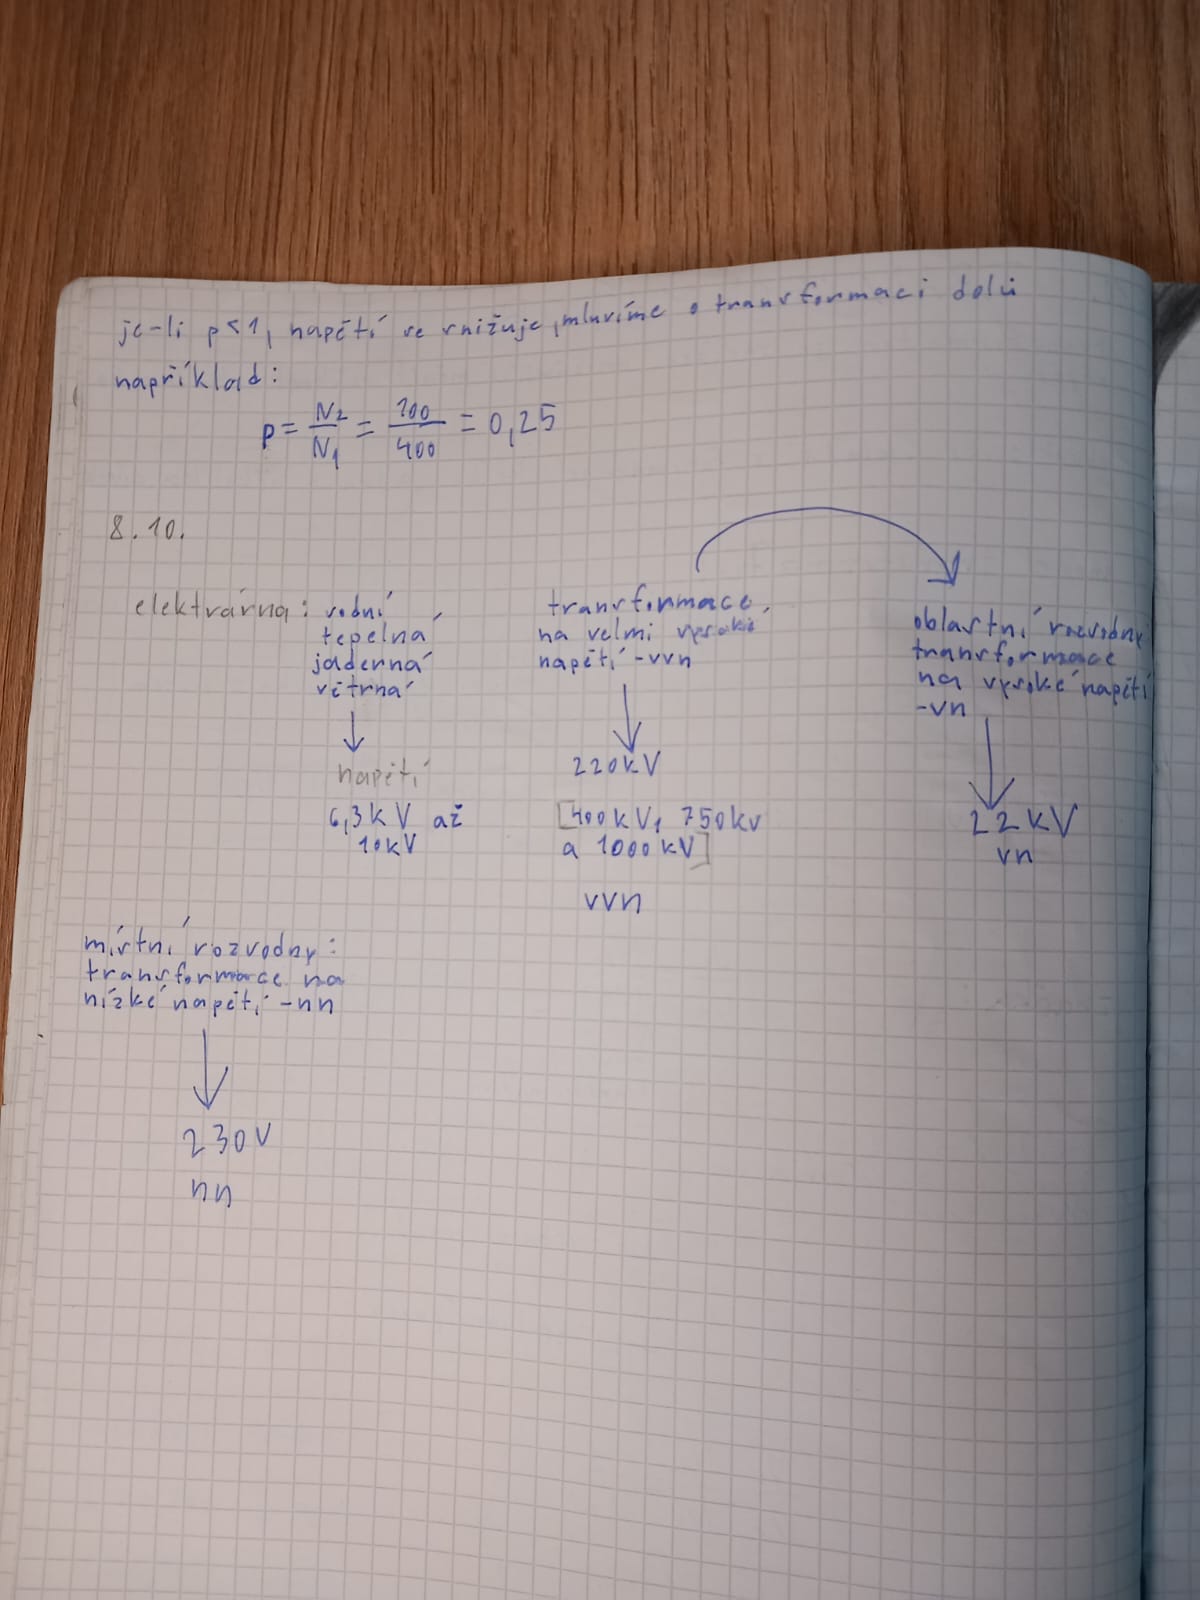 je-li p < 1, napětí se snižuje, mluvíme o transformaci dolů
například:
p = N₂/N₁ = 100/400 = 0,25
8.10.
elektrárna: vodní
tepelná
jaderná
větrná
↓
napětí
6,3kV až
10kV
transformace
na velmi vysoké
napětí -vvn
↓
220kV
[400kV, 750kv
a 1000kV]
vvn
oblastní rozvodny
transformace
na vysoké napětí
-vn
↓
22kV
vn
místní rozvodny:
transformace na
nízké napětí -nn
↓
230V
nn